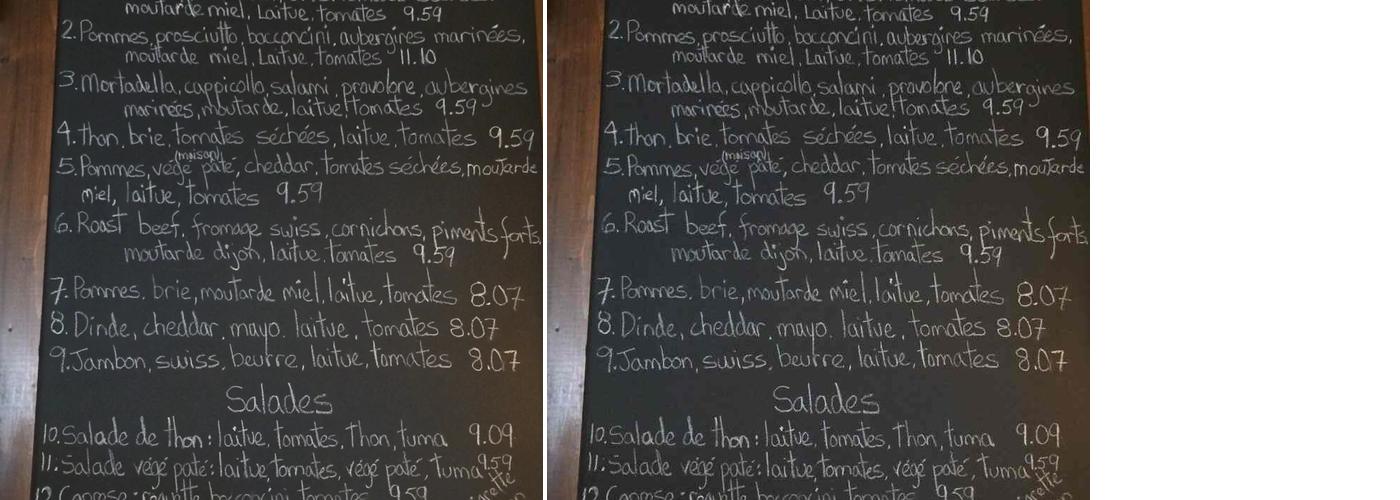 moutarde miel, Laitue, tomates 9.59
2. Pommes, prosciutto, bocconcini, aubergines marinées,
moutarde miel, Laitue, tomates 11.10
3. Mortadella, cappicollo, salami, provolone, aubergines
marinées, moutarde, laitue, tomates 9.59
4. thon, brie, tomates séchées, laitue, tomates 9.59
(maison)
5. Pommes, végé paté, cheddar, tomates séchées, moutarde
miel, laitue, tomates 9.59
6. Roast beef, fromage swiss, cornichons, piments forts,
moutarde dijon, laitue, tomates 9.59
7. Pommes, brie, moutarde miel, laitue, tomates 8.07
8. Dinde, cheddar, mayo, laitue, tomates 8.07
9. Jambon, swiss, beurre, laitue, tomates 8.07
Salades
10. Salade de thon: laitue, tomates, Thon, tuma 9.09
11. Salade végé paté: laitue, tomates, végé paté, tuma 9.59
bocconcini tomates 9.59
moutarde miel, Laitue, tomates 9.59
2. Pommes, prosciutto, bocconcini, aubergines marinées,
moutarde miel, Laitue, tomates 11.10
3. Mortadella, cappicollo, salami, provolone, aubergines
marinées, moutarde, laitue, tomates 9.59
4. thon, brie, tomates séchées, laitue, tomates 9.59
(maison)
5. Pommes, végé paté, cheddar, tomates séchées, moutarde
miel, laitue, tomates 9.59
6. Roast beef, fromage swiss, cornichons, piments forts,
moutarde dijon, laitue, tomates 9.59
7. Pommes, brie, moutarde miel, laitue, tomates 8.07
8. Dinde, cheddar, mayo, laitue, tomates 8.07
9. Jambon, swiss, beurre, laitue, tomates 8.07
Salades
10. Salade de thon: laitue, tomates, Thon, tuma 9.09
11. Salade végé paté: laitue, tomates, végé paté, tuma 9.59
bocconcini tomates 9.59